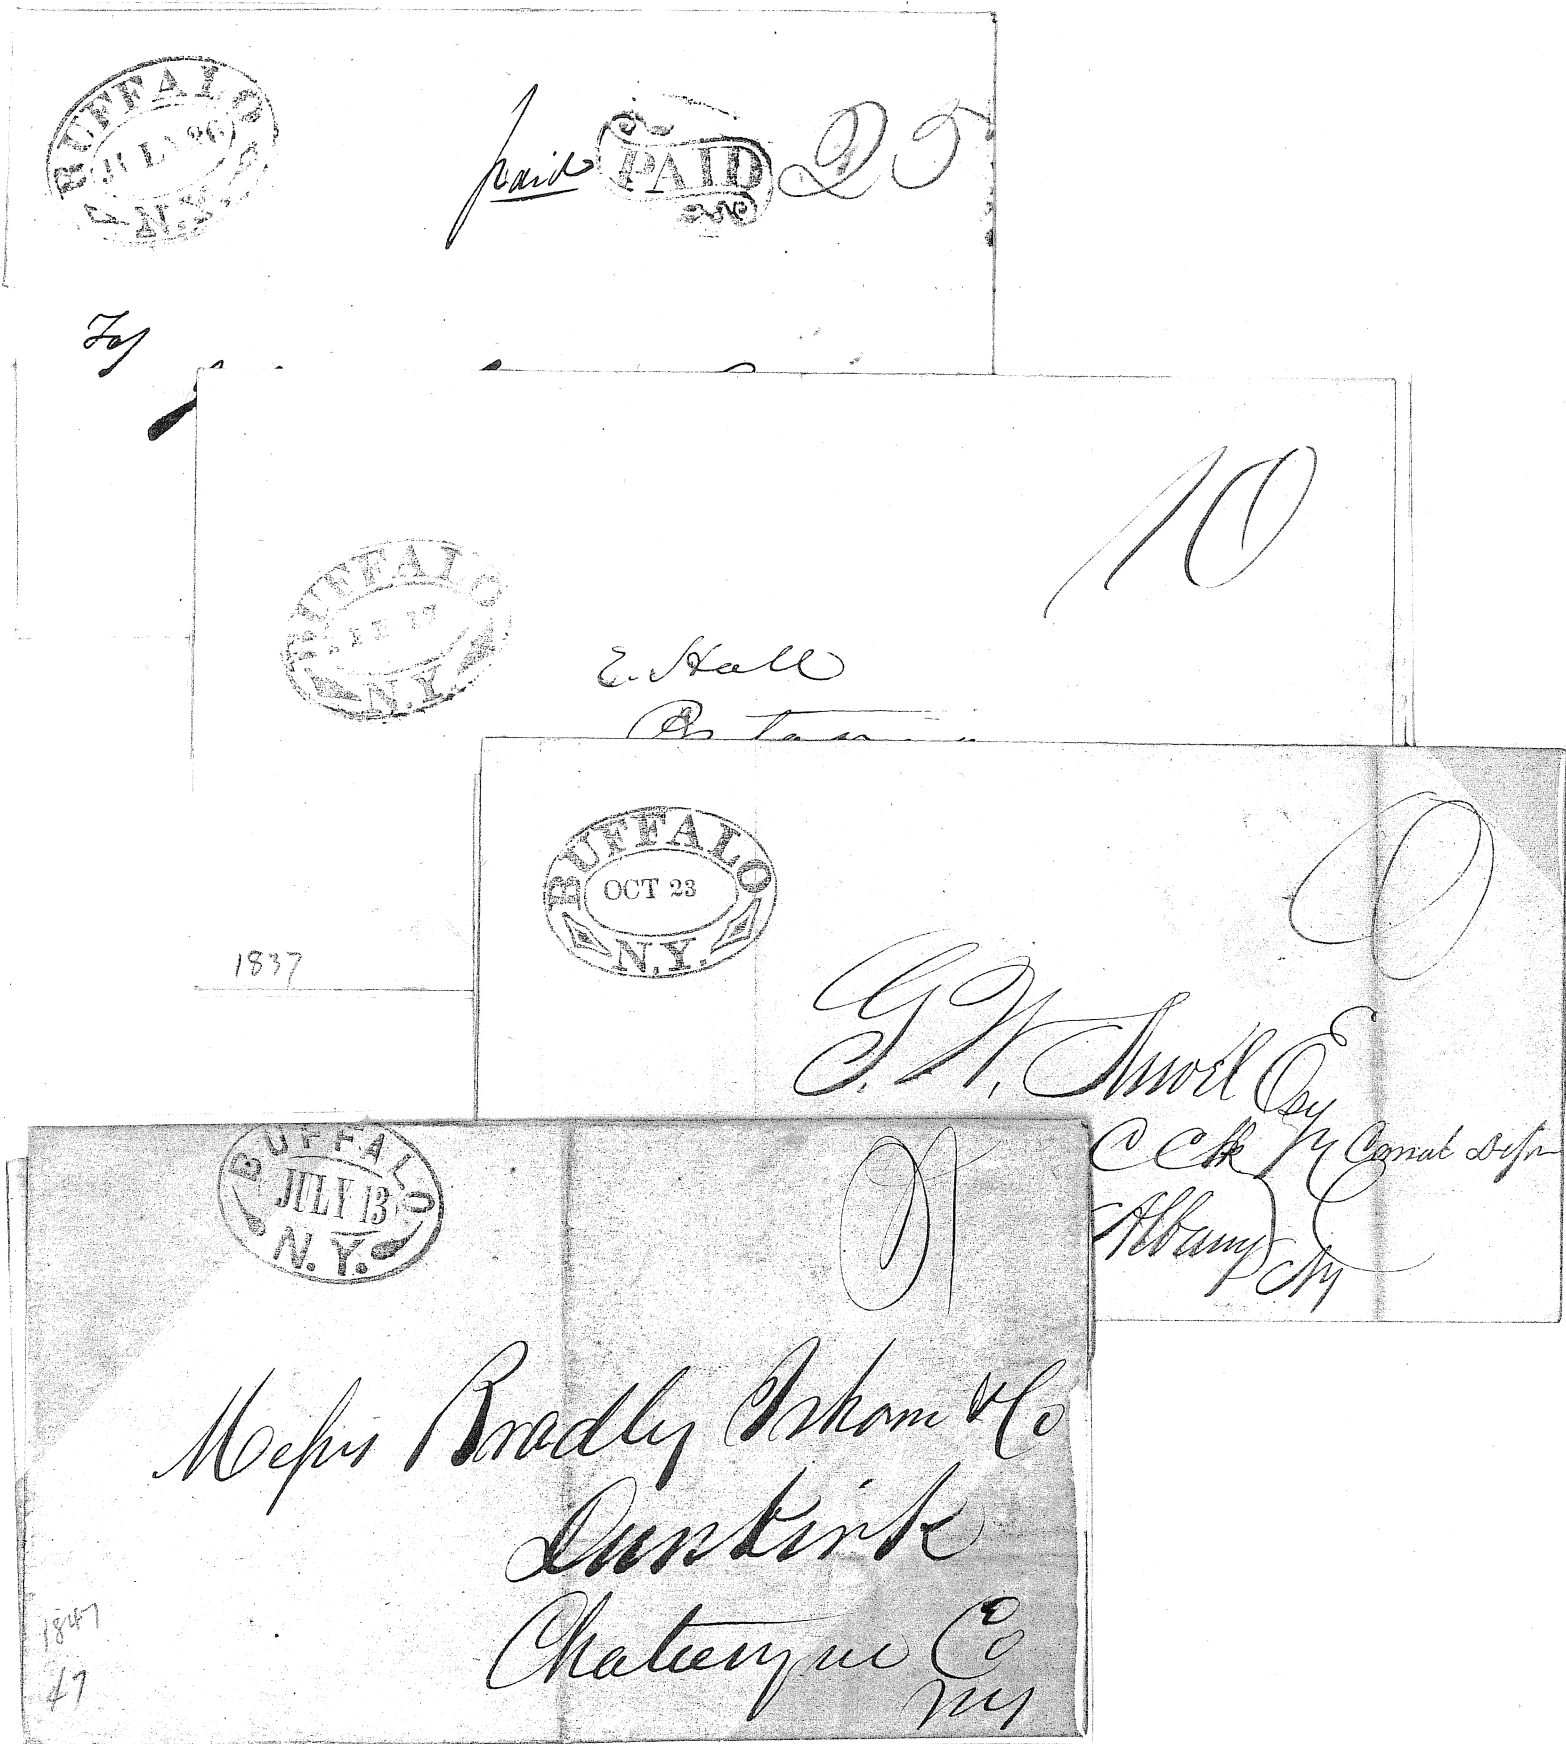 BUFFALO
JULY 26
N.Y.
paid PAID 25
To
BUFFALO
17
N.Y.
10
E. Hall
1837
BUFFALO
OCT 23
N.Y.
G. W. Esq
Canal
Albany
NY
BUFFALO
JULY 13
N.Y.
Messrs Bradley Isham & Co
Dunkirk
Chatauque Co
NY
1847
47